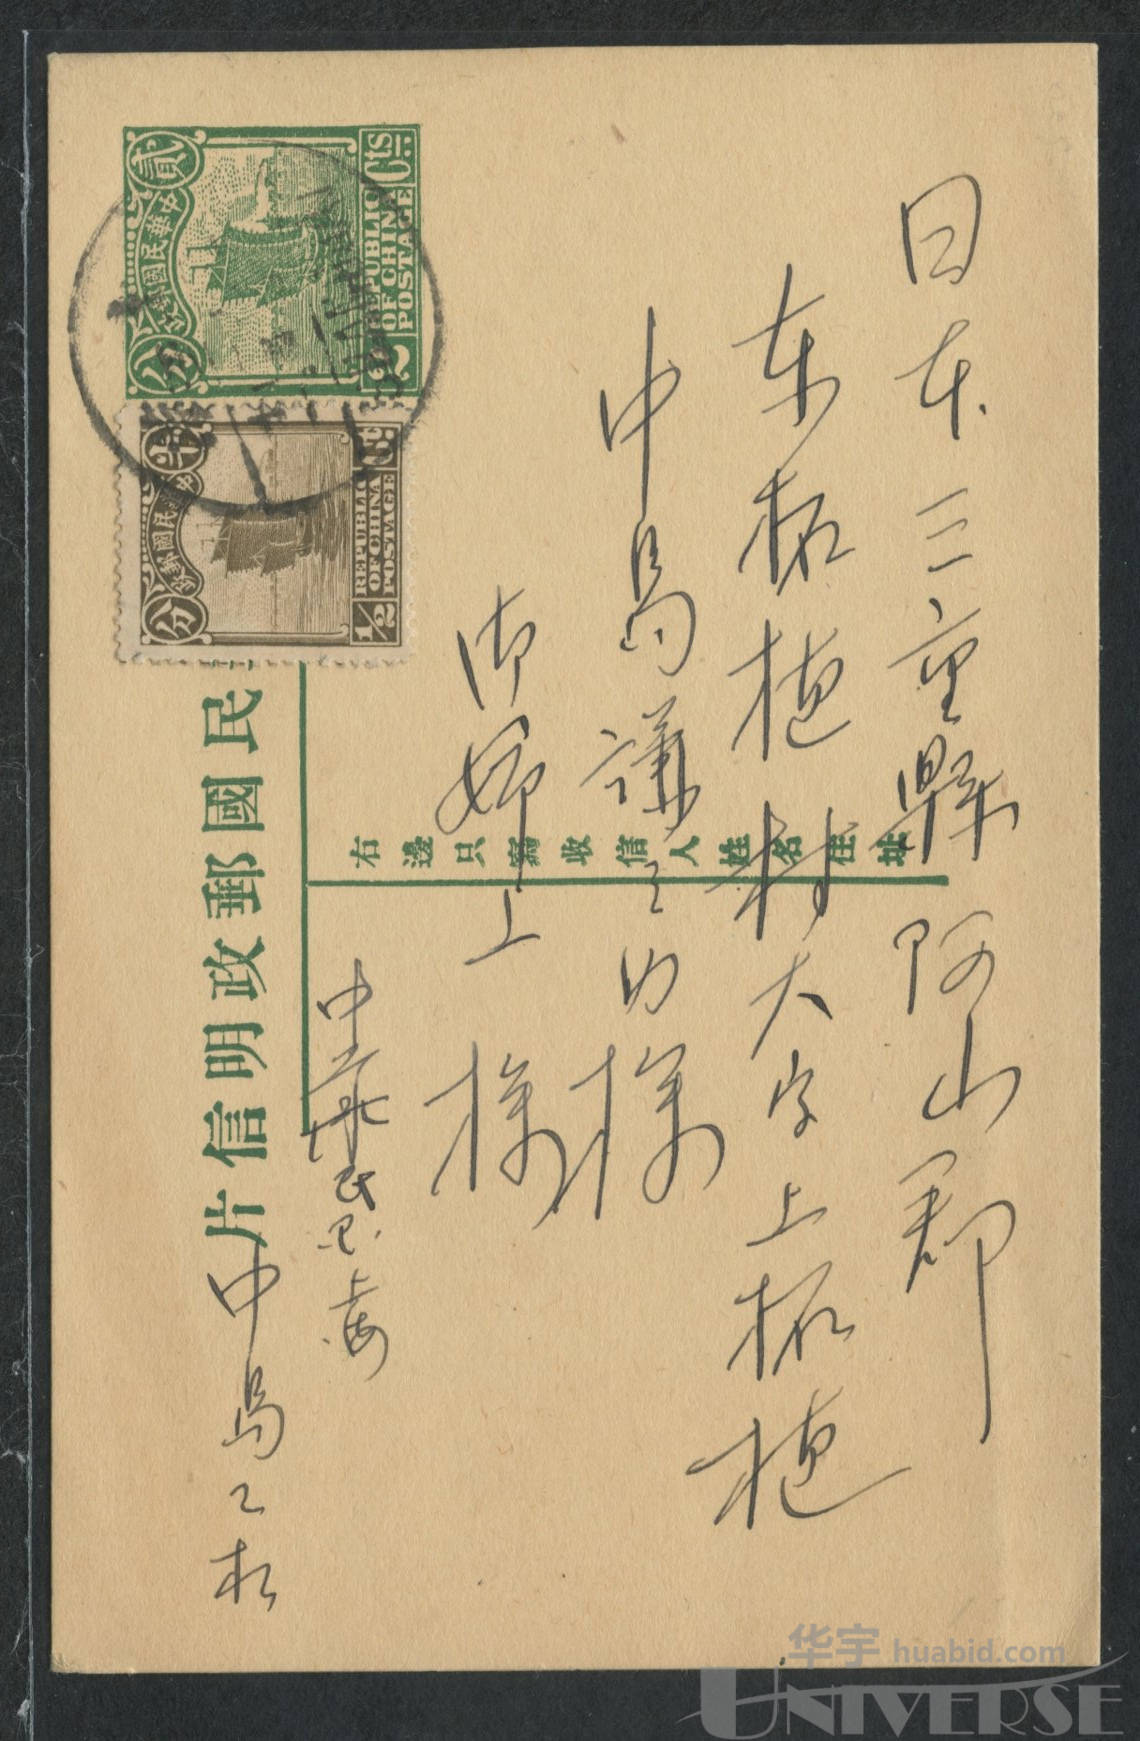 日本三重縣阿山郡
東柘植村大字上柘植
中島謙之内様
御姉上様
中華民国上海
中島乙松
民國郵政明信片
右邊只寫收信人姓名住址
貳分
中華民國郵政
REPUBLIC
OF CHINA
POSTAGE
2 Cts
半分
中華民國郵政
REPUBLIC
OF CHINA
POSTAGE
1/2 c
华宇 huabid.com
UNIVERSE